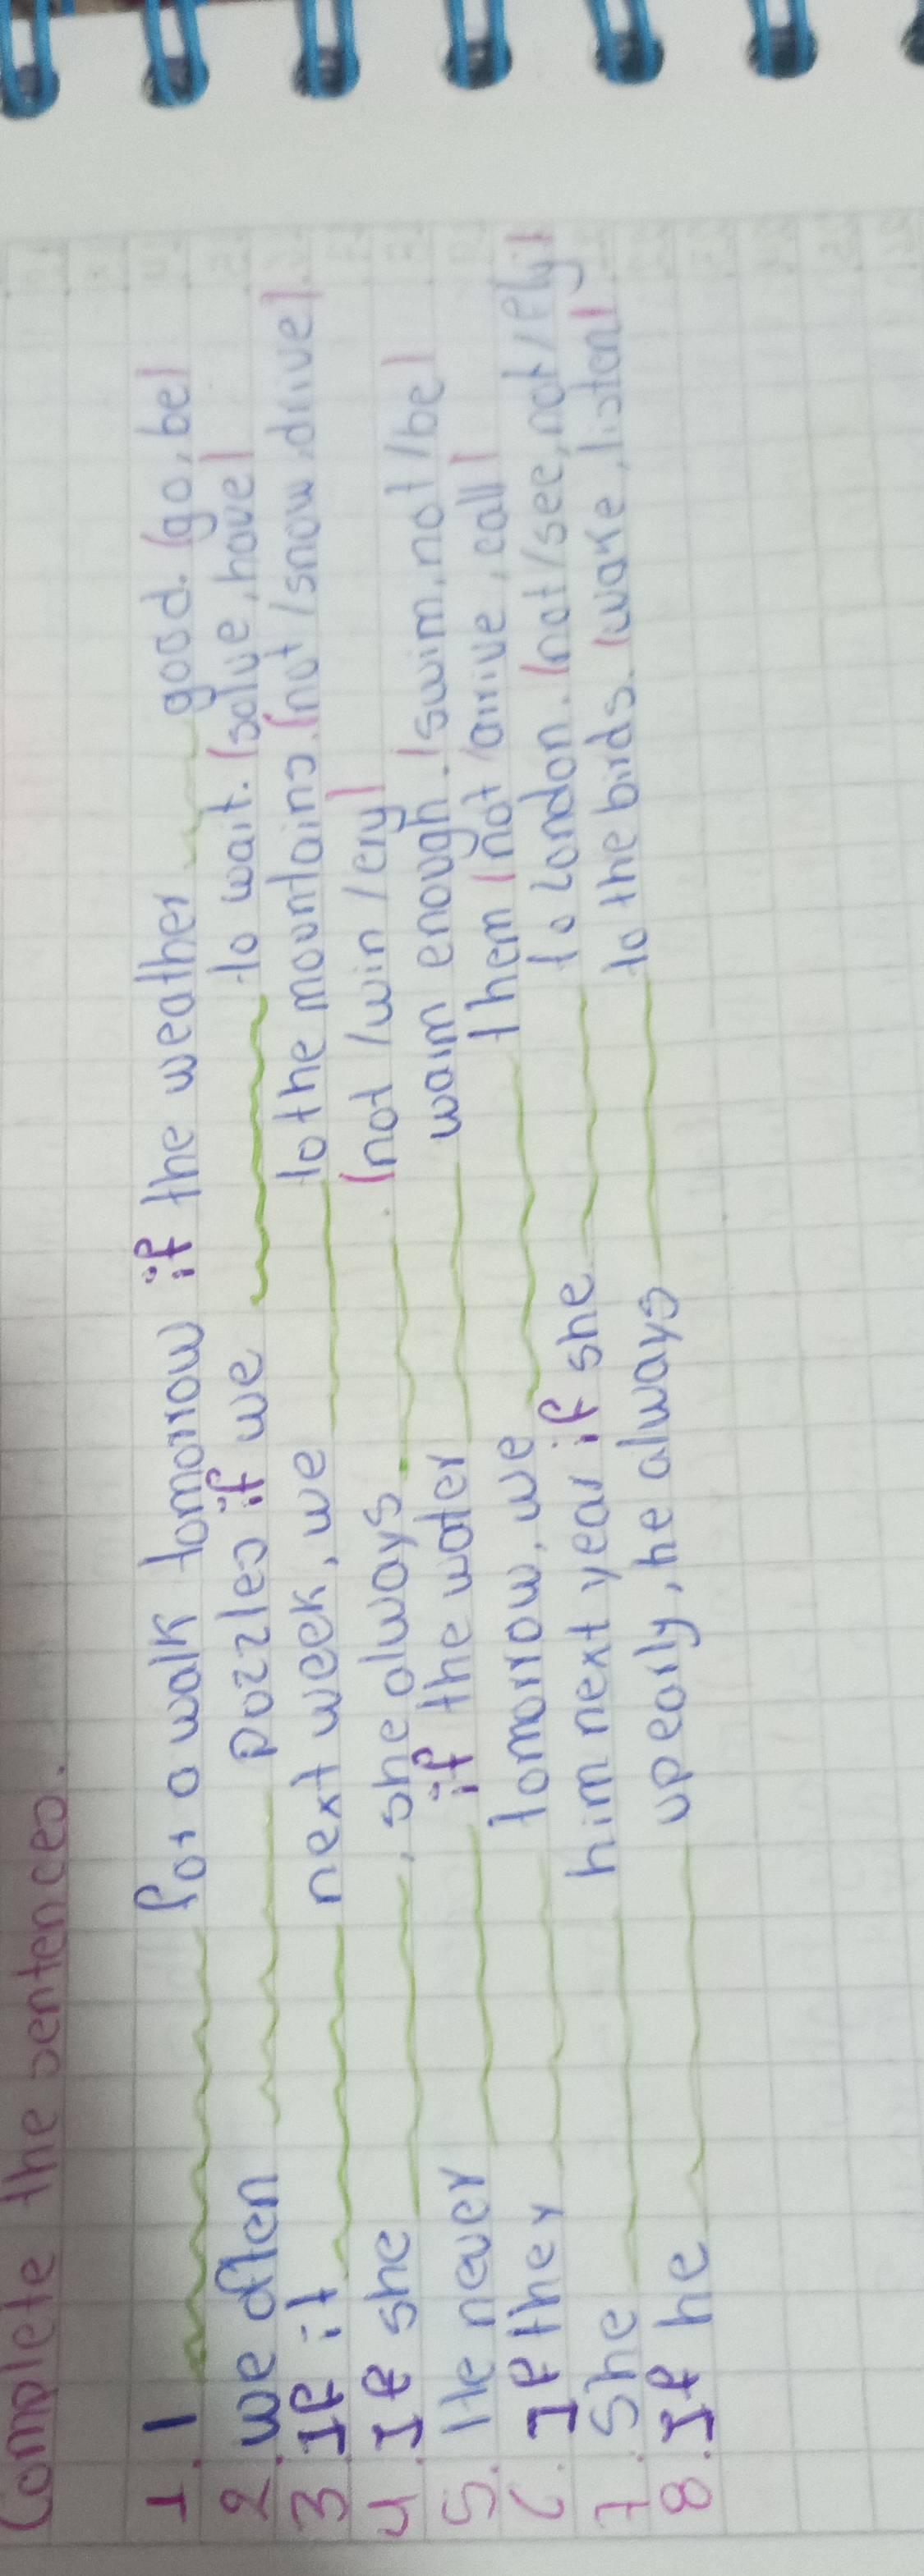 Complete the sentences.
1. I for a walk tomorrow if the weather good. (go, be)
2. we often pozzles if we to wait. (solve, have)
3. If it next week, we to the mountains. (not /snow, drive)
4. If she , she always . (not /win /cry)
5. He never if the water warm enough. (swim, not /be)
6. If they tomorrow, we them (not /arrive, call)
7. She him next year if she to London. (not /see, not /fly)
8. If he up early, he always to the birds. (wake, listen)